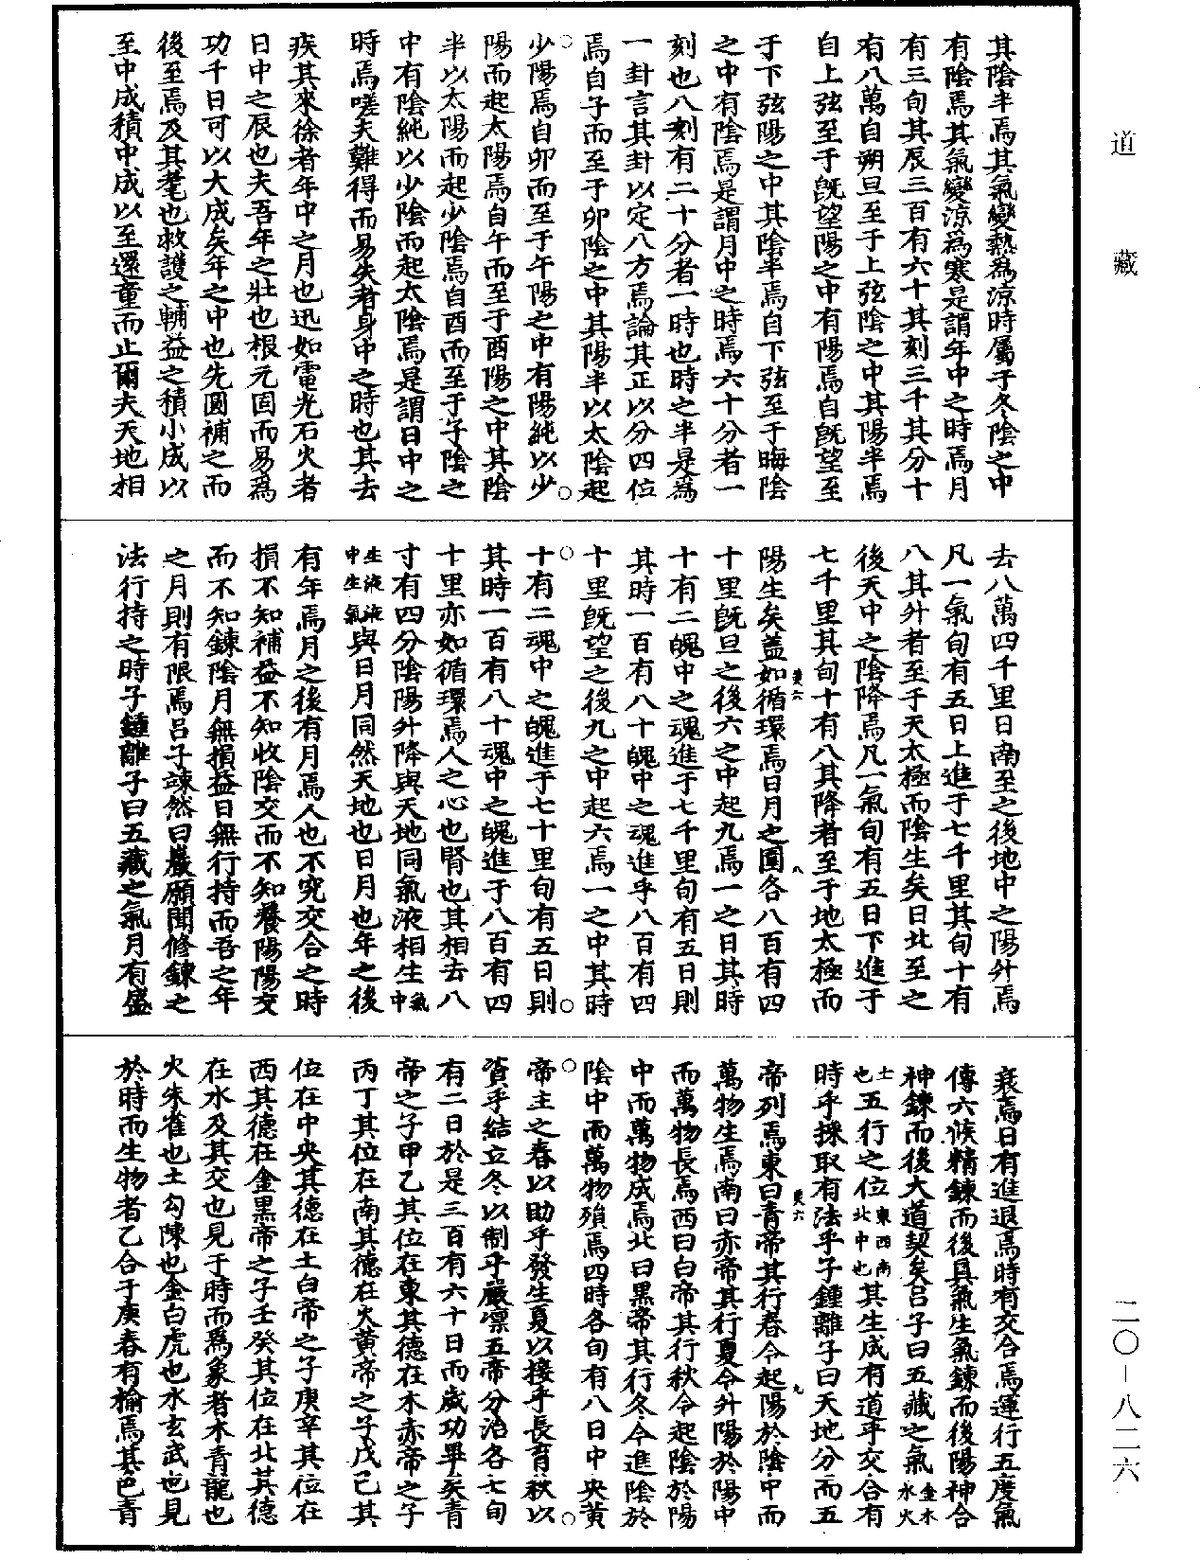 道藏
二〇－八二六
其陰半焉其氣變熱為涼時屬于冬陰之中
有陰焉其氣變涼為寒是謂年中之時焉月
有三旬其辰三百有六十其刻三千其分十
有八萬自朔旦至于上弦陰之中其陽半焉
自上弦至于旣望陽之中有陽焉自旣望至
于下弦陽之中其陰半焉自下弦至于晦陰
之中有陰焉是謂月中之時焉六十分者一
刻也八刻有二十分者一時也時之半是為
一卦言其卦以定八方焉論其正以分四位
焉自子而至于卯陰之中其陽半以太陰起
少陽焉自卯而至于午陽之中有陽純以少
陽而起太陽焉自午而至于酉陽之中其陰
半以太陽而起少陰焉自酉而至于子陰之
中有陰純以少陰而起太陰焉是謂日中之
時焉嗟夫難得而易失者身中之時也其去
疾其來徐者年中之月也迅如電光石火者
日中之辰也夫吾年之壯也根元固而易為
功千日可以大成矣年之中也先圓補之而
後至焉及其耄也救護之輔益之積小成以
至中成積中成以至還童而止爾夫天地相
去八萬四千里日南至之後地中之陽升焉
凡一氣旬有五日上進于七千里其旬十有
八其升者至于天太極而陰生矣日北至之
後天中之陰降焉凡一氣旬有五日下進于
七千里其旬十有八其降者至于地太極而
陽生矣蓋如循環焉日月之圓各八百有四
十里旣旦之後六之中起九焉一之日其時
十有二魄中之魂進于七千里旬有五日則
其時一百有八十魄中之魂進乎八百有四
十里旣望之後九之中起六焉一之中其時
十有二魂中之魄進于七十里旬有五日則
其時一百有八十魂中之魄進于八百有四
十里亦如循環焉人之心也腎也其相去八
寸有四分陰陽升降與天地同氣液相生氣中
生液液中生氣與日月同然天地也日月也年之後
有年焉月之後有月焉人也不究交合之時
損不知補益不知收陰交而不知養陽陽交
而不知鍊陰月無損益日無行持而吾之年
之月則有限焉呂子竦然曰巖願聞修鍊之
法行持之時子鍾離子曰五藏之氣月有盛
衰焉日有進退焉時有交合焉運行五度氣
傳六候精鍊而後具氣生氣鍊而後陽神合
神鍊而後大道契矣呂子曰五藏之氣金木水火
土也五行之位東西南北中也其生成有道乎交合有
時乎採取有法乎子鍾離子曰天地分而五
帝列焉東曰青帝其行春令起陽於陰中而
萬物生焉南曰赤帝其行夏令升陽於陽中
而萬物長焉西曰白帝其行秋令起陰於陽
中而萬物成焉北曰黑帝其行冬令進陰於
陰中而萬物殞焉四時各旬有八日中央黃
帝主之春以助乎發生夏以接乎長育秋以
資乎結立冬以制乎嚴凛五帝分治各七旬
有二日於是三百有六十日而歲功畢矣青
帝之子甲乙其位在東其德在木赤帝之子
丙丁其位在南其德在火黃帝之子戊己其
位在中央其德在土白帝之子庚辛其位在
西其德在金黑帝之子壬癸其位在北其德
在水及其交也見于時而為象者木青龍也
火朱雀也土勾陳也金白虎也水玄武也見
於時而生物者乙合于庚春有榆焉其色青